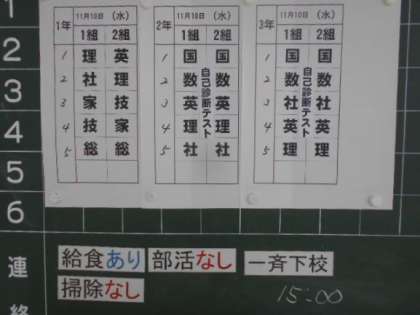 1
2
3
4
5
6
連
絡
1年 11月10日 (水)
1組 2組
1 理 英
2 社 理
3 家 技
4 技 家
5 総 総
2年 11月10日 (水)
1組 2組
自己診断テスト
1 国 国
2 数 数
3 英 英
4 理 理
5 社 社
3年 11月10日 (水)
1組 2組
自己診断テスト
1 国 国
2 数 数
3 社 社
4 英 英
5 理 理
給食あり 部活なし 一斉下校
掃除なし 15:00